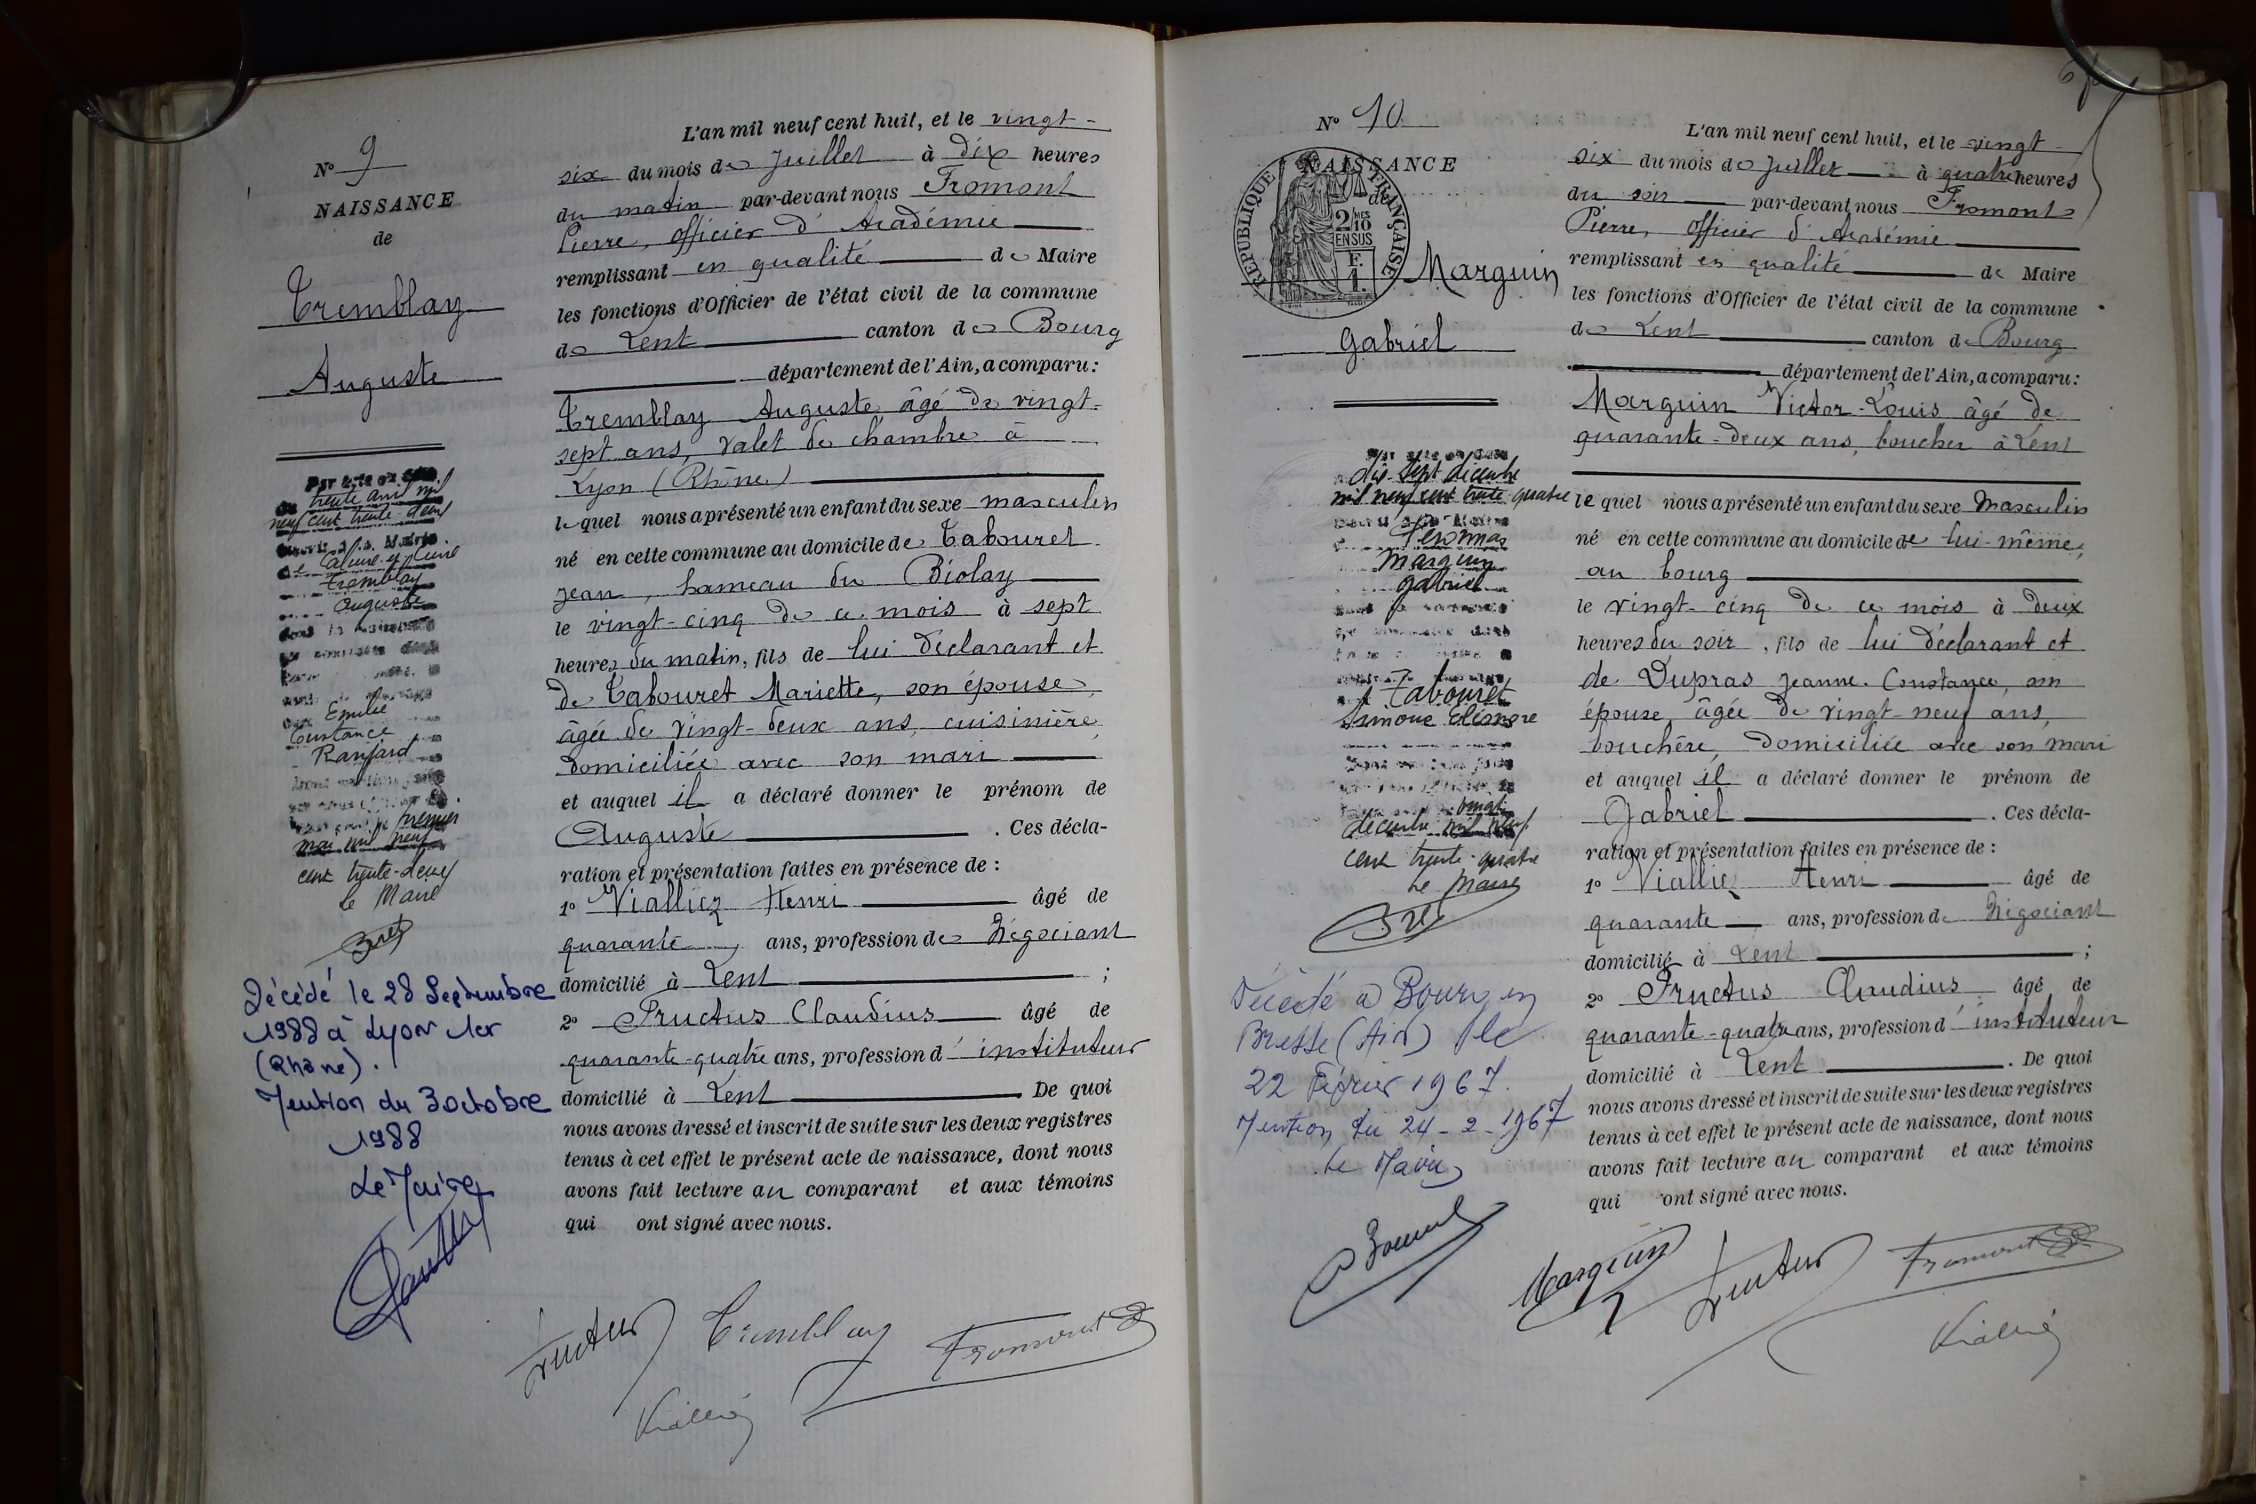 Nº 9
NAISSANCE
de
Tremblay
Auguste
trente avril mil
neuf cent trente-deux
Caluire et Cuire
Tremblay
Auguste
Emilie
Constance
Ranfard
premier
mai mil neuf
cent trente-deux
Le Maire
Décédé le 28 Septembre
1988 à Lyon 1er
(Rhône).
Mention du 3 octobre
1988
Le Maire
L'an mil neuf cent huit, et le vingt-
six du mois de Juillet à dix heures
du matin par-devant nous Fromont
Pierre, officier d'Académie
remplissant en qualité de Maire
les fonctions d'Officier de l'état civil de la commune
de Lent canton de Bourg
département de l'Ain, a comparu :
Tremblay Auguste âgé de vingt-
sept ans, valet de chambre à
Lyon (Rhône)
lequel nous a présenté un enfant du sexe masculin
né en cette commune au domicile de Tabouret
Jean, hameau du Biolay
le vingt-cinq de ce mois à sept
heures du matin, fils de lui déclarant et
de Tabouret Mariette, son épouse,
âgée de vingt-deux ans, cuisinière,
domiciliée avec son mari
et auquel il a déclaré donner le prénom de
Auguste . Ces décla-
ration et présentation faites en présence de :
1º Viallier Henri âgé de
quarante ans, profession de Négociant
domicilié à Lent ;
2º Fructus Claudius âgé de
quarante-quatre ans, profession d'instituteur
domicilié à Lent De quoi
nous avons dressé et inscrit de suite sur les deux registres
tenus à cet effet le présent acte de naissance, dont nous
avons fait lecture au comparant et aux témoins
qui ont signé avec nous.
Fructus Tremblay Fromont
Viallié
Nº 10
NAISSANCE
de
RÉPUBLIQUE FRANÇAISE
2/10 MES
EN SUS
F.
1.
Marguin
Gabriel
dix-sept décembre
mil neuf cent trente-quatre
Péronnas
Marguin
Gabriel
Tabouret
Simone Eléonore
vingt
décembre mil neuf
cent trente-quatre
Le Maire
Décédé à Bourg en
Bresse (Ain) le
22 Février 1967.
Mention du 24-2-1967
Le Maire
L'an mil neuf cent huit, et le vingt-
six du mois de Juillet à quatre heures
du soir par-devant nous Fromont
Pierre, officier d'Académie
remplissant en qualité de Maire
les fonctions d'Officier de l'état civil de la commune
de Lent canton de Bourg
département de l'Ain, a comparu :
Marguin Victor-Louis âgé de
quarante-deux ans, boucher à Lent
lequel nous a présenté un enfant du sexe masculin
né en cette commune au domicile de lui-même,
au bourg
le vingt-cinq de ce mois à deux
heures du soir, fils de lui déclarant et
de Dupras Jeanne-Constance, son
épouse, âgée de vingt-neuf ans,
bouchère, domiciliée avec son mari
et auquel il a déclaré donner le prénom de
Gabriel . Ces décla-
ration et présentation faites en présence de :
1º Viallié Henri âgé de
quarante ans, profession de Négociant
domicilié à Lent ;
2º Fructus Claudius âgé de
quarante-quatre ans, profession d'instituteur
domicilié à Lent . De quoi
nous avons dressé et inscrit de suite sur les deux registres
tenus à cet effet le présent acte de naissance, dont nous
avons fait lecture au comparant et aux témoins
qui ont signé avec nous.
Marguin Fructus Fromont
Viallié